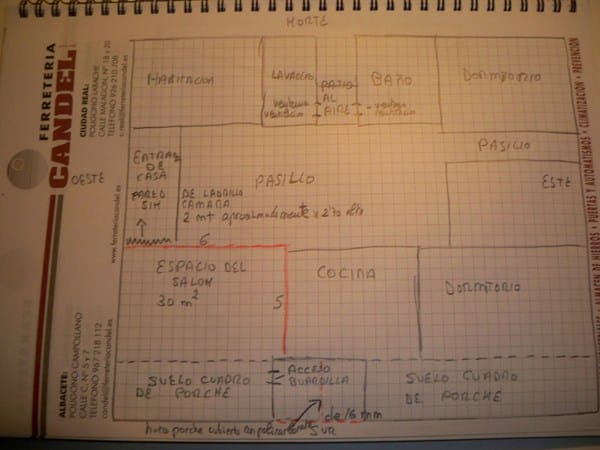 NORTE
HABITACION
LAVADERO
PATIO
AL
AIRE
ventana
BAÑO
ventana
DORMITORIO
PASILLO
ENTRADA
DE
CASA
PARED
SIN
DE LADRILLO
CAMARA
2 mt aproximadamente x 2'70 alto
PASILLO
OESTE
ESTE
6
ESPACIO DEL
SALON
30 m²
5
COCINA
DORMITORIO
SUELO CUADRO
DE PORCHE
ACCESO
BUARDILLA
SUELO CUADRO
DE PORCHE
de 16 mm
hueco porche cubierto con policarbonato
SUR
FERRETERIA
CANDEL
CIUDAD REAL:
POLIGONO LARACHE
CALLE MALAGON, Nº 18 y 20
TELEFONO 926 210 706
www.ferreteriacandel.es
ALBACETE:
POLIGONO CAMPOLLANO
CALLE C, Nº 5 y 7
TELEFONO 967 218 112
candel@ferreteriacandel.es
ALMACEN DE HIERROS • PUERTAS Y AUTOMATISMOS • CLIMATIZACION • PREVENCION